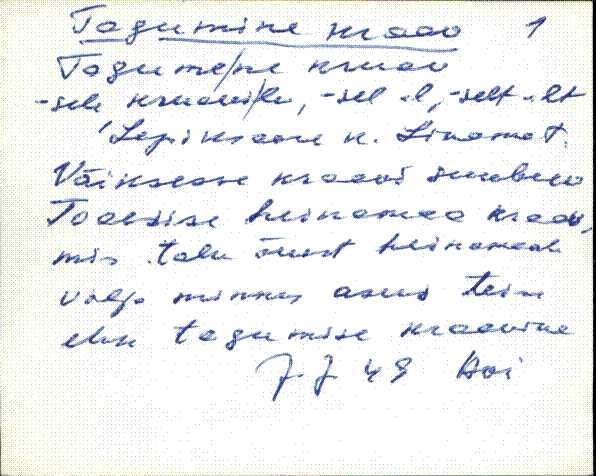 Tagumine kraav 1
Tagume/ne kraav
-sele kraavi/le, -sel -l, -selt -lt
Lepiksaare k. Linamat.
Väiksesse kraavi suubuv
heinamaa kraav,
mis talu õuest heinamaale
välja minnes asus teise
ehk tagumise kraavina
J. J 49 Aoi